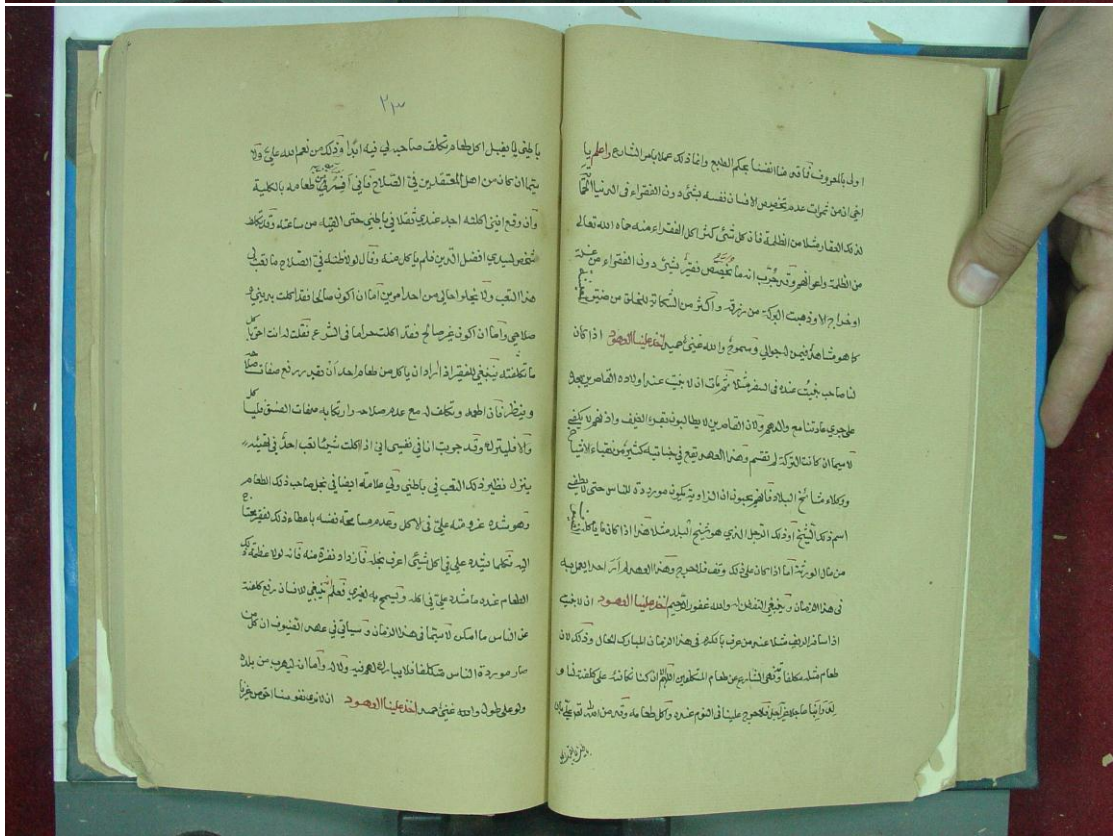 اولى بالمعروف فما قدمنا انفسنا بحكم الطبع وانما ذلك عملا بامر الشارع واعلم يا
اخي ان من ثمرات عدم تخصيص الانسان نفسه بشئ دون الفقراء فى الدنيا
لذلك العقار مثلا من الظلمة فان كل شئ كثر اكل الفقراء منه حماه الله تعالى
من الظلمة واعوانهم وقد جرب انه ما تخصص فقير بشئ دون الفقراء من
اوخراج الا وذهبت البركة من رزقه واكثر من الشكاية للخلق من ضيق
كما هو مشاهد فيمن له جوالي ومسموح والله غني حميد اخذ علينا العهود اذا كان
لنا صاحب نبيت عنده فى السفر مثلا ثم مات ان لا نبيت عند اولاده القاصرين بعده
على جري عادتنا مع والدهم ولان القاصرين لا يطالبون بقراء الضيف
لا سيما ان كانت التركة لم تقسم وهذا العهد يقع في خيانته كثير من نقباء الاشياخ
ووكلاء مشائخ البلاد فانهم يحبون ان الزاوية تكون موردة للناس حتى لا يطفى
اسم ذلك الشيخ او ذلك الرجل الذي هو شيخ البلد مثلا هذا اذا كان ما ياكله
من مال الورثة اما اذا كان على ذلك وقف فلا حرج وهذا العهد لم ار احدا يعمل به
فى هذا الزمان وينبغي التفطن له والله غفور رحيم اخذ علينا العهود ان لا نبيت
اذا سافرنا لريف مثلا عند من عرف بالكرم فى هذا الزمان المبارك للحال وذلك لان
طعام مثله تكلفا ونهى الشارع عن طعام المتكلفين اللهم ان كنا نكافئه على كلفته لنا
عاجلا فلا حرج علينا فى النوم عنده واكل طعامه وقد من الله تعالى علي بان
٢٣
باطني لا يقبل اكل طعام تكلف صاحبه لي فيه ابدا وذلك من نعم الله علي ولا
سيما ان كان من اهل المعتقدين في الصلاح فاني طعامه بالكلية
وان وقع انني اكلته اجد عندي ثقلا في باطني حتى القيه من ساعته وقد تكلف
شخص لسيدي افضل الدين فلم ياكل منه وقال لولا ظنه في الصلاح ما تعب لي
هذا التعب ولا يخلوا حالي من احد امرين اما ان اكون صالحا فقد اكلت بديني و
صلاحي واما ان اكون غير صالح فقد اكلت حراما فى الشرع فقلت له انت احق
ما تكلفته ينبغي للفقير اذا اراد ان ياكل من طعام احد ان يقدر رفع صفات
وينظر فان اطعمه وتكلف له مع عدم صلاحه وارتكابه صفات الفسق فلياكل
والا فليتركه وقد جربت انا في نفسي اني اذا اكلت شيئا تعب احد في تحصيله
ينزل نظير ذلك التعب في باطني ولي علامة ايضا في بخل صاحب ذلك الطعام
وهو شدة عزومته علي في الاكل وعدم مسامحة نفسه باعطاء ذلك لفقير
اليه فكلما شدد علي في اكل شئ اعرف بخله فازداد نفرة منه فانه لولا عظمة ذلك
الطعام عنده ما شدد علي في اكله ويسمح به لغيري فعلم ينبغي للانسان رفع كلفته
عن الناس ما امكن لا سيما فى هذا الزمان وسياتي في عهد الضيوف ان كل من
صار موردة الناس متكلفا فلا يبارك له فيه ولا له واما ان يهرب من بلده
ولو على طول والله غني حميد اخذ علينا العهود ان لا نرى نفوسنا احق من غيرنا